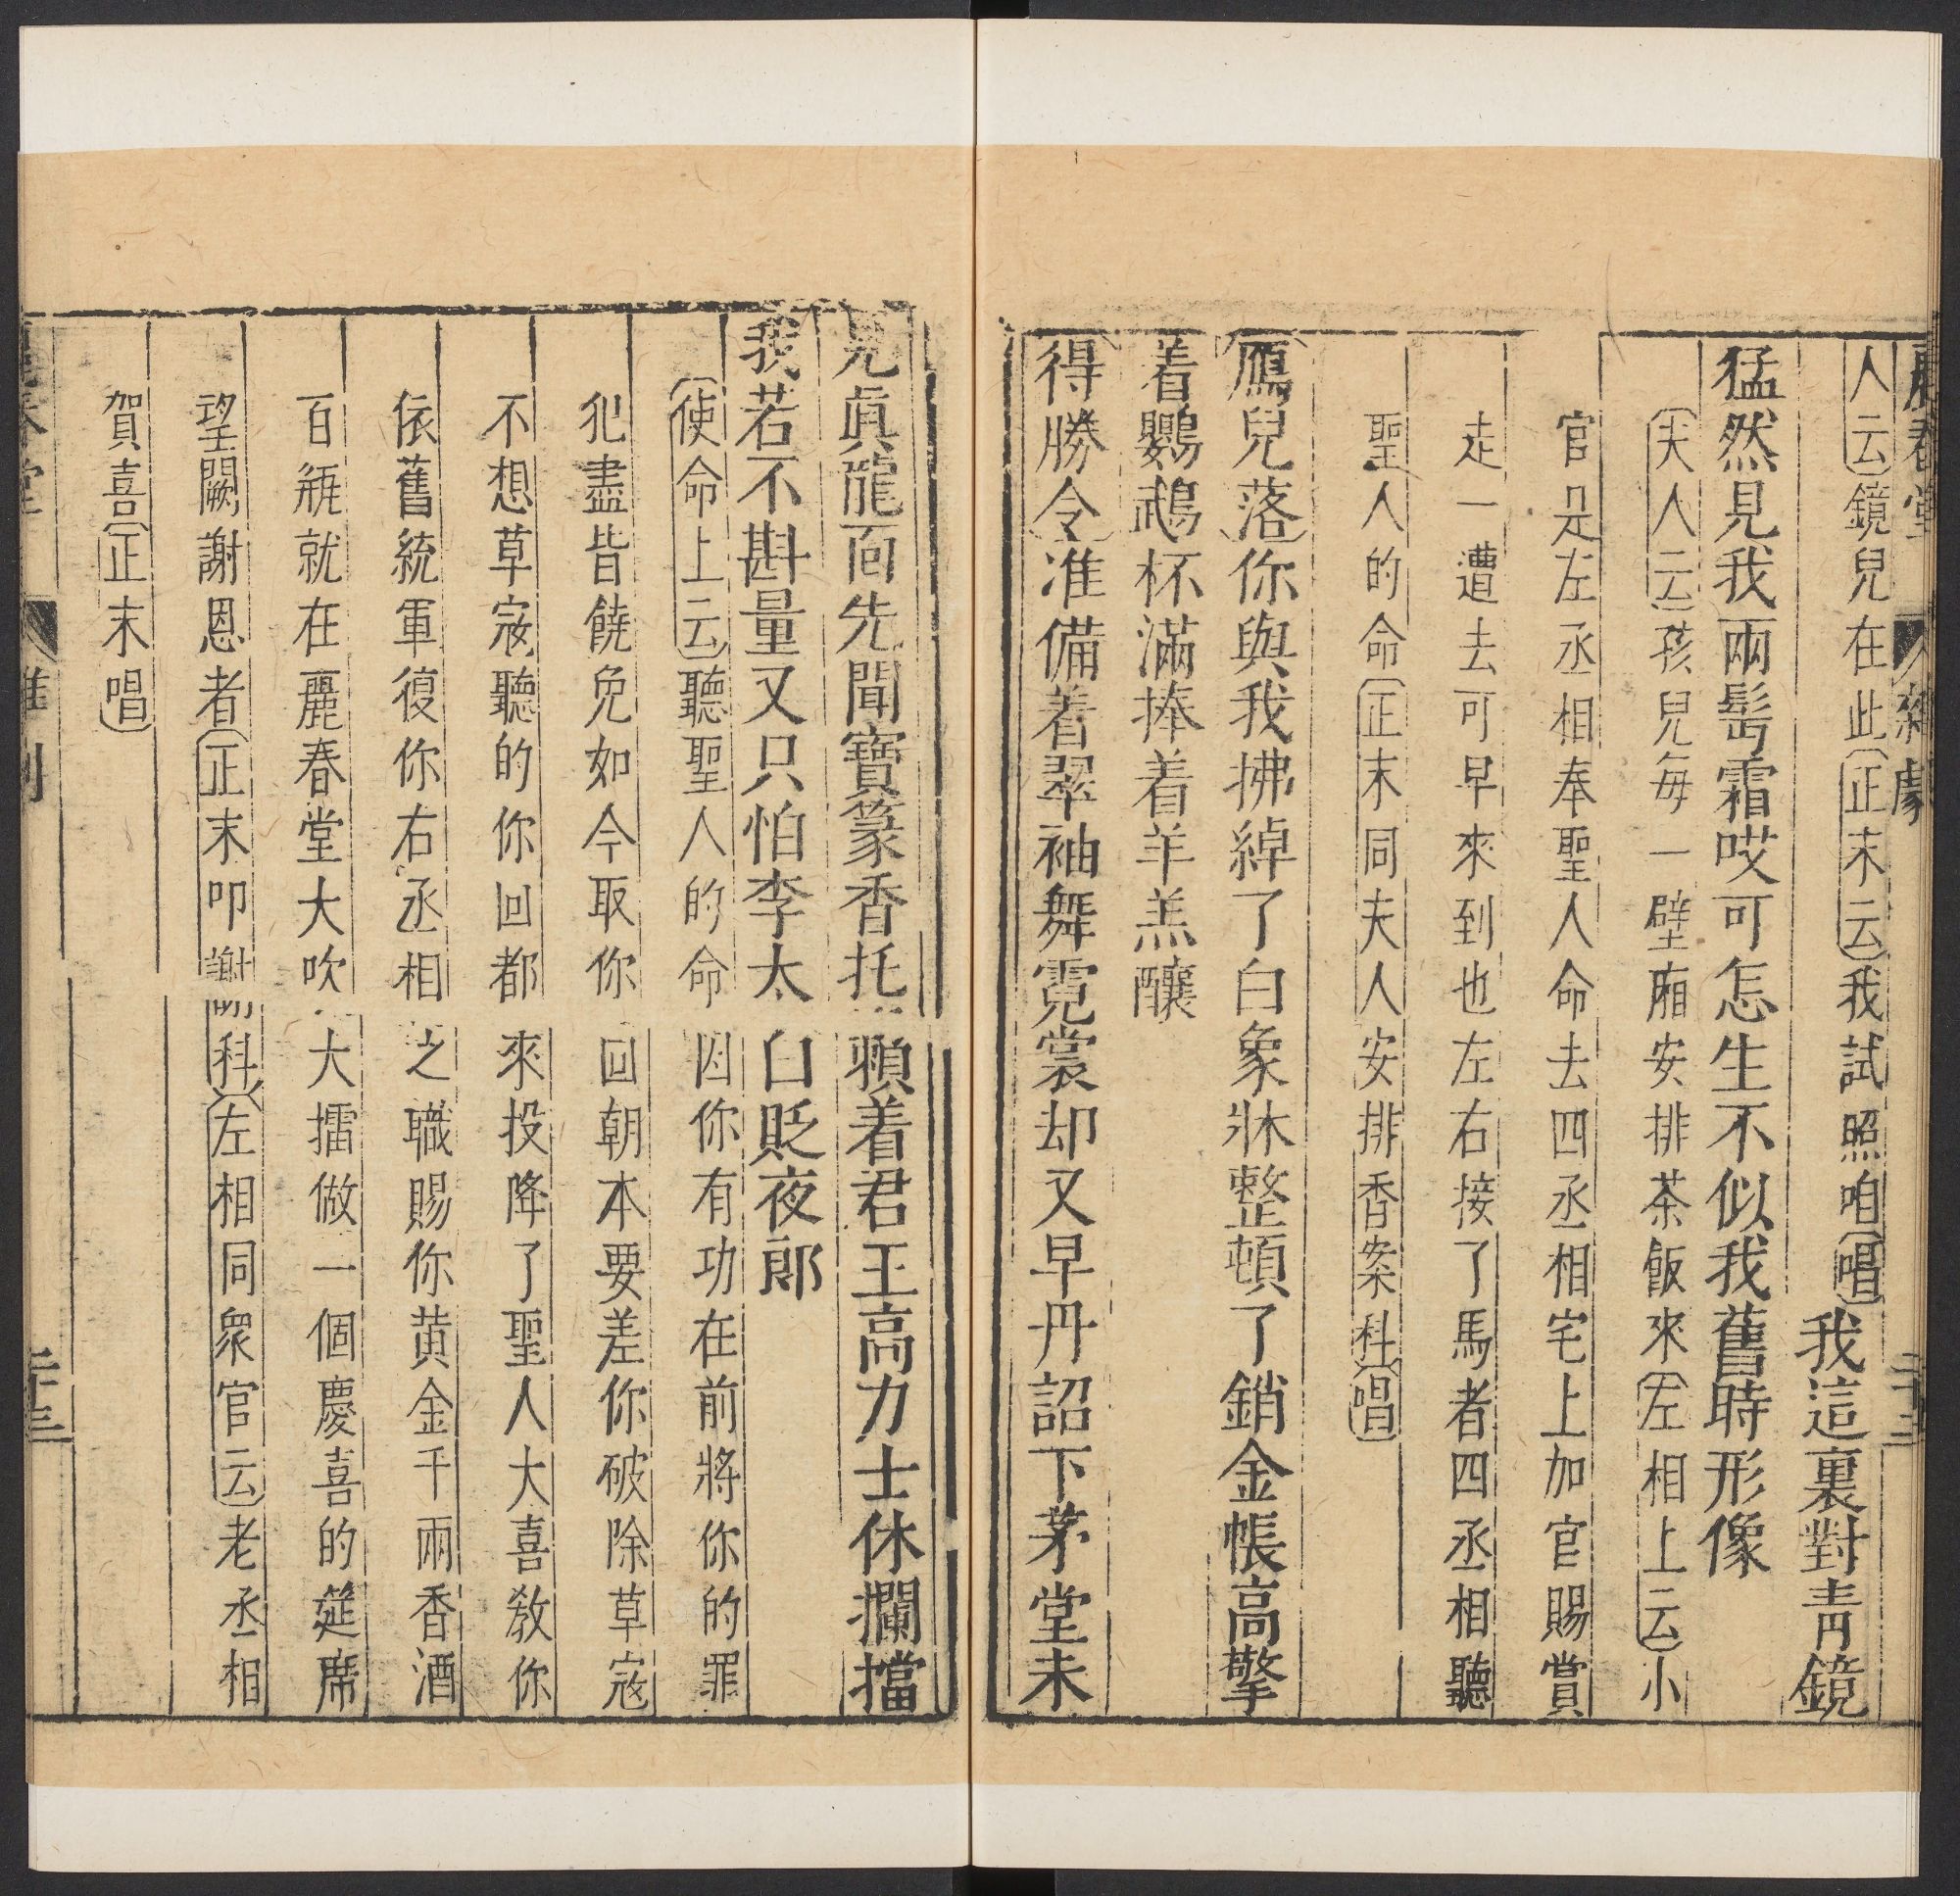 人云鏡兒在此正末云我試照咱唱我這裏對青鏡
猛然見我兩髩霜哎可怎生不似我舊時形像
夫人云孩兒每一壁廂安排茶飯來左相上云小
官是左丞相奉聖人命去四丞相宅上加官賜賞
走一遭去可早來到也左右接了馬者四丞相聽
聖人的命正末同夫人安排香案科唱
鴈兒落你與我拂綽了白象牀整頓了銷金帳高擎
着鸚鵡杯滿捧着羊羔釀
得勝令准備着翠袖舞霓裳却又早丹詔下茅堂未
見眞龍面先聞寶篆香托賴着君王高力士休攔擋
我若不斟量又只怕李太白貶夜郎
使命上云聽聖人的命因你有功在前將你的罪
犯盡皆饒免如今取你回朝本要差你破除草寇
不想草寇聽的你回都來投降了聖人大喜敎你
依舊統軍復你右丞相之職賜你黄金千兩香酒
百瓶就在麗春堂大吹大擂做一個慶喜的筵席
望闕謝恩者正末叩謝科左相同衆官云老丞相
賀喜正末唱
春堂 雜劇 二十三